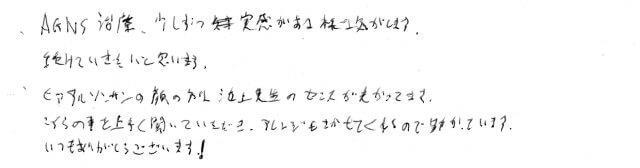 、AGNS治療、少しずつ実感がある様な気がします。
続けていきたいと思います。
、ヒアルロンサンの顔の 池上先生のセンスが光かってます。
こちらの事を上手く聞いていただき、アレンジもきかせてくれるので助かっています。
いつもありがとうございます!